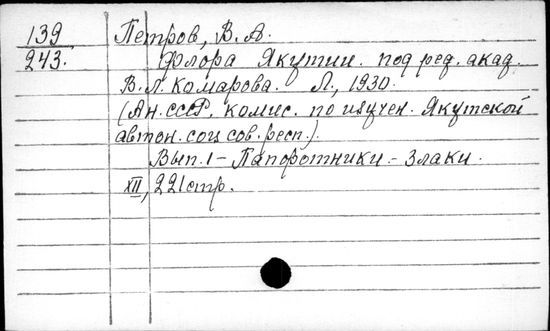 139 Петров, В.А.
243. Флора Якутии. под ред. акад.
В.Л. Комарова. Л., 1930.
(Ан. СССР. комис. по изучен. Якутской
автон. соц. сов. респ.)
Вып. 1 - Папоротники - Злаки.
XII, 221 стр.